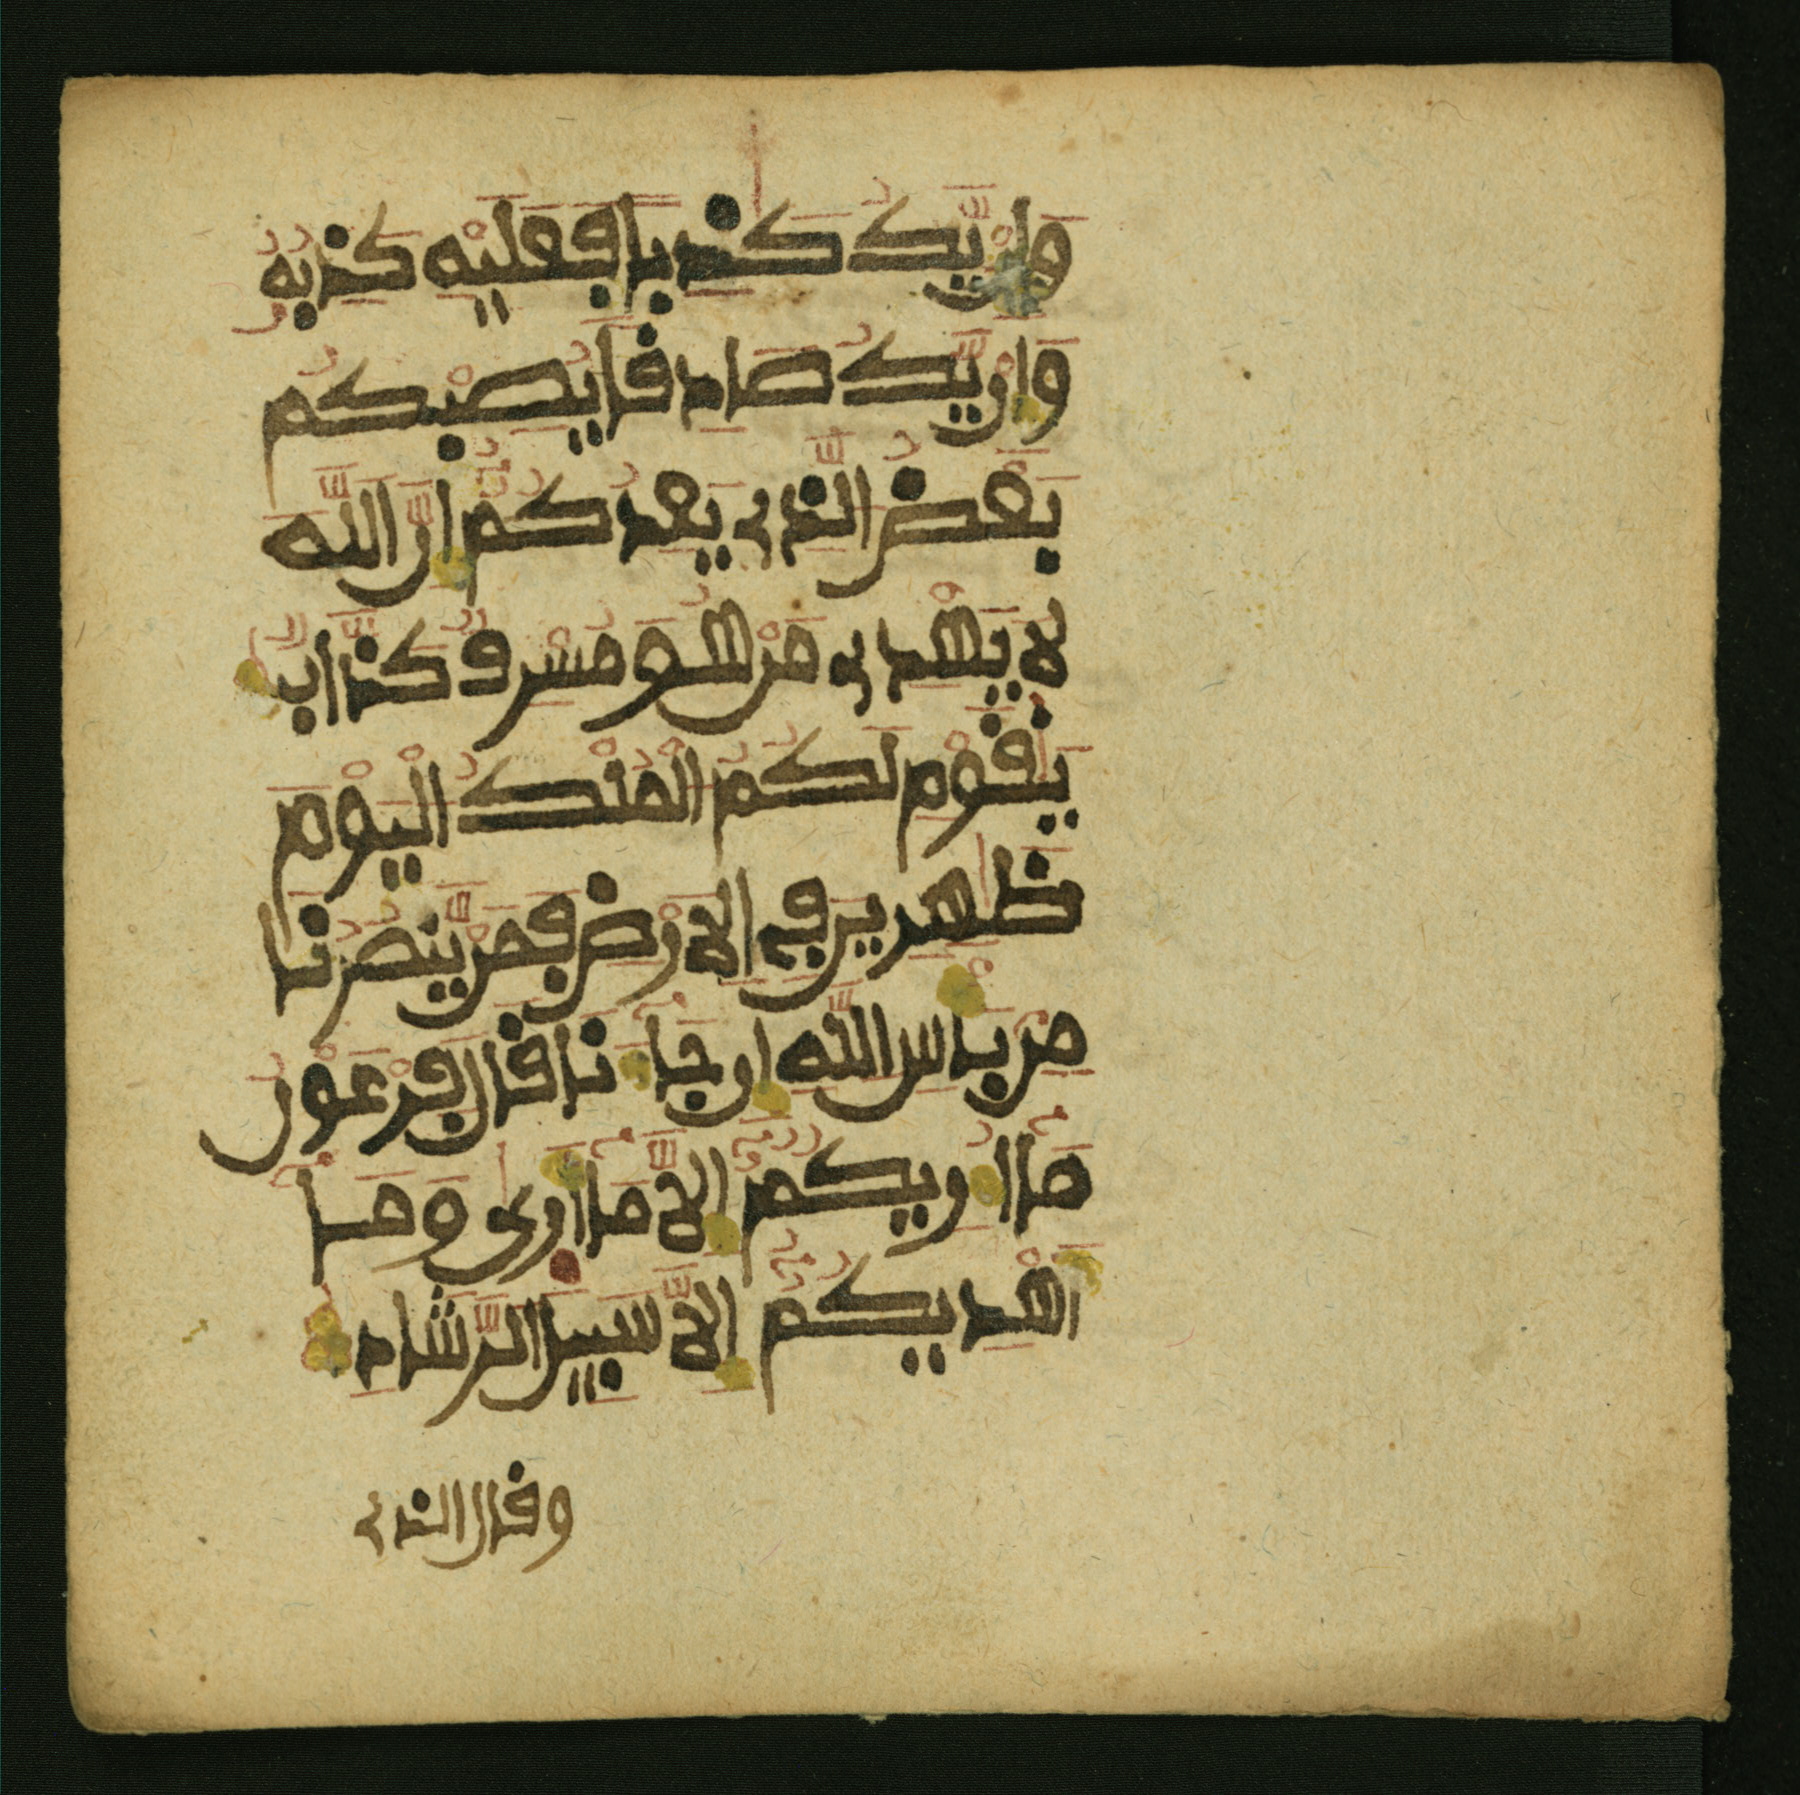 وَإِنْ يَّكُ كَٰذِبًا فَعَلَيْهِ كَذِبُهُ
وَإِنْ يَّكُ صَادِقًا يُصِبْكُم
بَعْضُ الَّذِے يَعِدُكُمُۥٓ إِنَّ اللَّهَ
لَا يَهْدِے مَنْ هُوَ مُسْرِفٌ كَذَّابٌ
يَٰقَوْمِ لَكُمُ الْمُلْكُ الْيَوْمَ
ظَٰهِرِينَ فِي الَارْضِ فَمَنْ يَّنصُرُنَا
مِنۢ بَأْسِ اللَّهِ إِن جَآءَنَا قَالَ فِرْعَوْنُ
مَآ أُرِيكُمُۥٓ إِلَّا مَآ أَرَىٰ وَمَآ
أَهْدِيكُمُۥٓ إِلَّا سَبِيلَ الرَّشَادِ
وقال الذے